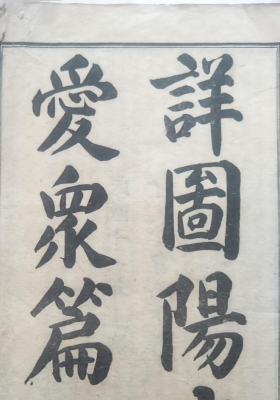 詳圖陽
愛眾篇